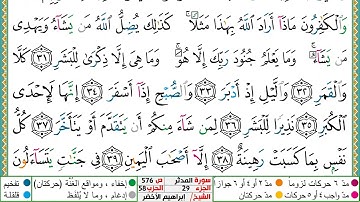 وَٱلْكَٰفِرُونَ مَاذَآ أَرَادَ ٱللَّهُ بِهَٰذَا مَثَلًا ۚ كَذَٰلِكَ يُضِلُّ ٱللَّهُ مَن يَشَآءُ وَيَهْدِى
مَن يَشَآءُ ۚ وَمَا يَعْلَمُ جُنُودَ رَبِّكَ إِلَّا هُوَ ۚ وَمَا هِىَ إِلَّا ذِكْرَىٰ لِلْبَشَرِ ٣١ كَلَّا
وَٱلْقَمَرِ ٣٢ وَٱلَّيْلِ إِذْ أَدْبَرَ ٣٣ وَٱلصُّبْحِ إِذَآ أَسْفَرَ ٣٤ إِنَّهَا لَإِحْدَى
ٱلْكُبَرِ ٣٥ نَذِيرًا لِّلْبَشَرِ ٣٦ لِمَن شَآءَ مِنكُمْ أَن يَتَقَدَّمَ أَوْ يَتَأَخَّرَ ٣٧ كُلُّ
نَفْسٍۭ بِمَا كَسَبَتْ رَهِينَةٌ ٣٨ إِلَّآ أَصْحَٰبَ ٱلْيَمِينِ ٣٩ فِى جَنَّٰتٍ يَتَسَآءَلُونَ
مدّ ٦ حركات لزوماً مدّ ٢ أو ٤ أو ٦ جوازاً سورة المدثر ص 576 إخفاء ، ومواقع الغُنَّة (حركتان) تفخيم
مدّ واجب ٤ أو ٥ حركات مدّ حركتان الجزء 29 الحزب 58 إدغام ، وما لا يُلفَظ قلقلة
الشيخ/ إبراهيم الأخضر